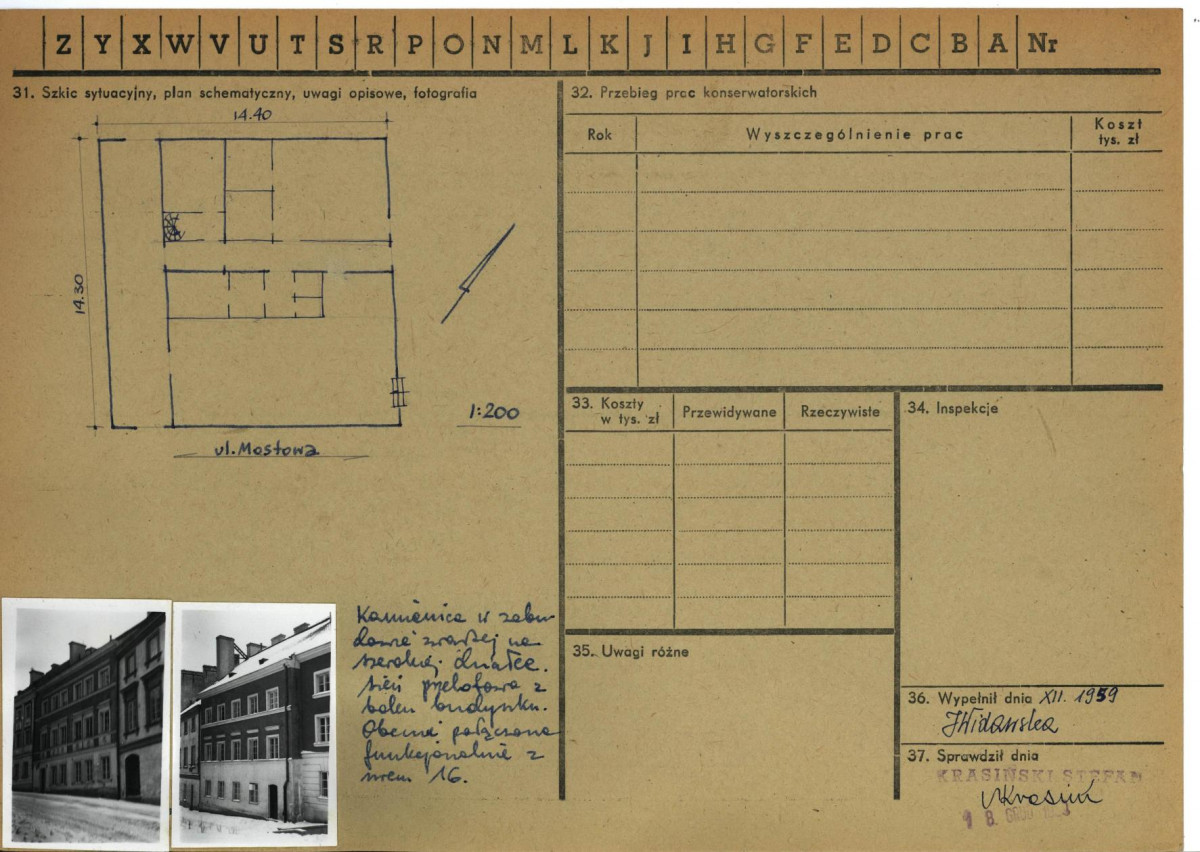 Z Y X W V U T S R P O N M L K J I H G F E D C B A Nr
31. Szkic sytuacyjny, plan schematyczny, uwagi opisowe, fotografia
14.40
14.30
1:200
ul. Mostowa
Kamienica w zabu-
dowie zwartej na
szerokiej działce.
Sień przelotowa z
boku budynku.
Obecnie połączona
funkcjonalnie z
nrem 16.
32. Przebieg prac konserwatorskich
Rok
Wyszczególnienie prac
Koszt
tys. zł
33. Koszty
w tys. zł
Przewidywane
Rzeczywiste
34. Inspekcje
35. Uwagi różne
36. Wypełnił dnia XII. 1959
37. Sprawdził dnia
KRASIŃSKI STEFAN
18.